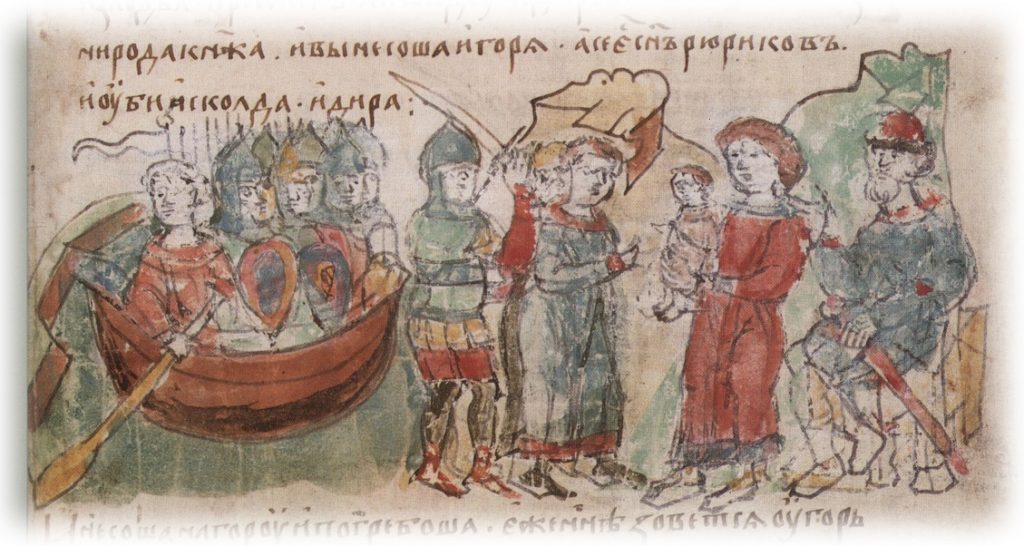 ни рода кн҃жа . и вынесоша игоря . а се е сн҃ъ рюриковъ .
и оуби асколда . и дира :
и несоша на гороу и погребоша . еже нн҃ѣ зоветься оугорь